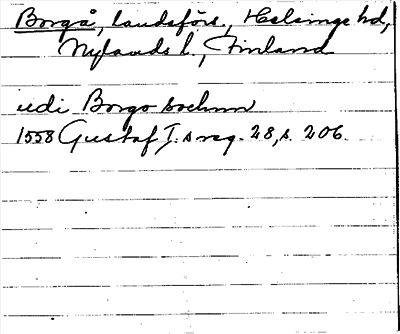 Borgå, landsförs., Helsinge hd,
Nylands l., Finland
udi Borgo sochnn
1558 Gustaf I:s reg. 28, s. 206.